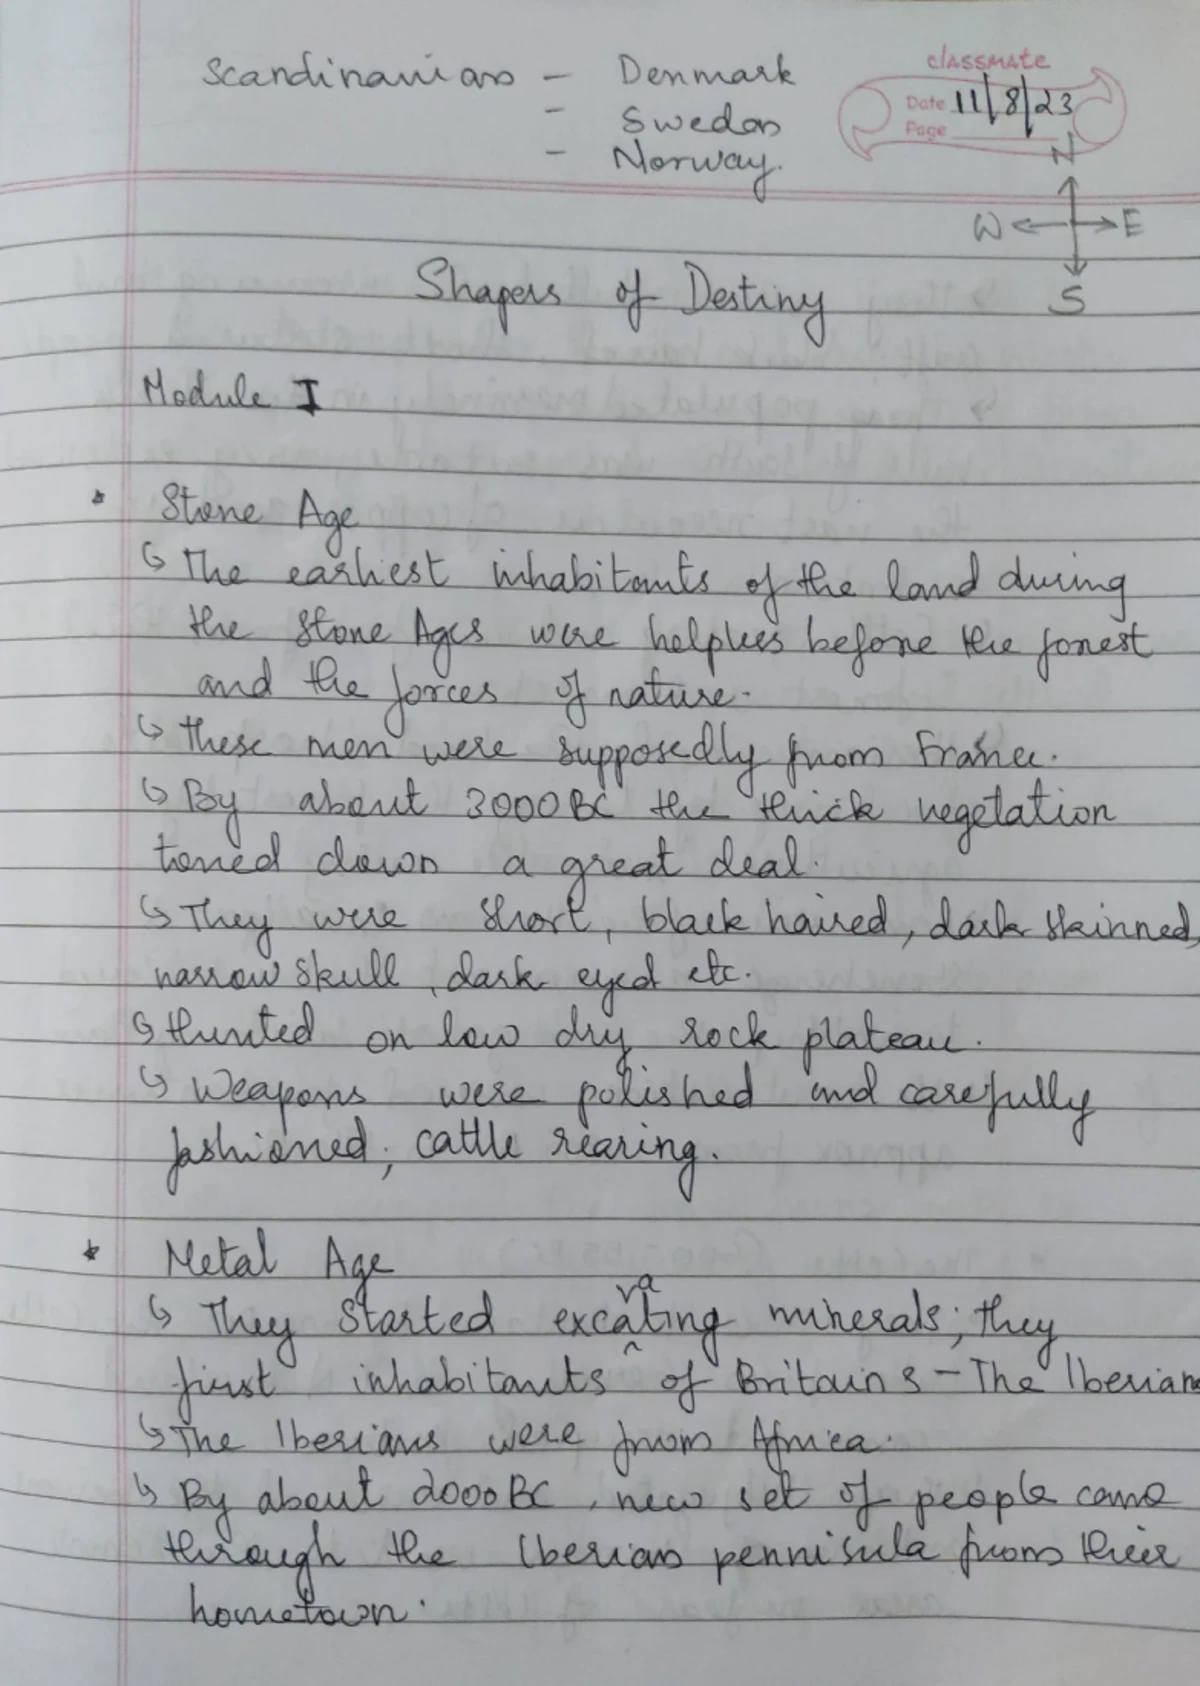 Scandinavians - Denmark
- Sweden
- Norway.
classmate
Date 11/8/23
Page
N
W E
S
Shapers of Destiny
Module I
* Stone Age
↳ The earliest inhabitants of the land during
the Stone Ages were helpless before the forest
and the forces of nature.
↳ These men were supposedly from France.
↳ By about 3000 BC the thick vegetation
toned down a great deal.
↳ They were short, black haired, dark skinned,
narrow skull, dark eyed etc.
↳ Hunted on low dry rock plateau.
↳ Weapons were polished and carefully
fashioned, cattle rearing.
* Metal Age
↳ They started excavating minerals; they
first inhabitants of Britain s - The Iberians
↳ The Iberians were from Africa.
↳ By about 2000 BC, new set of people came
through the Iberian pennisula from their
hometown.